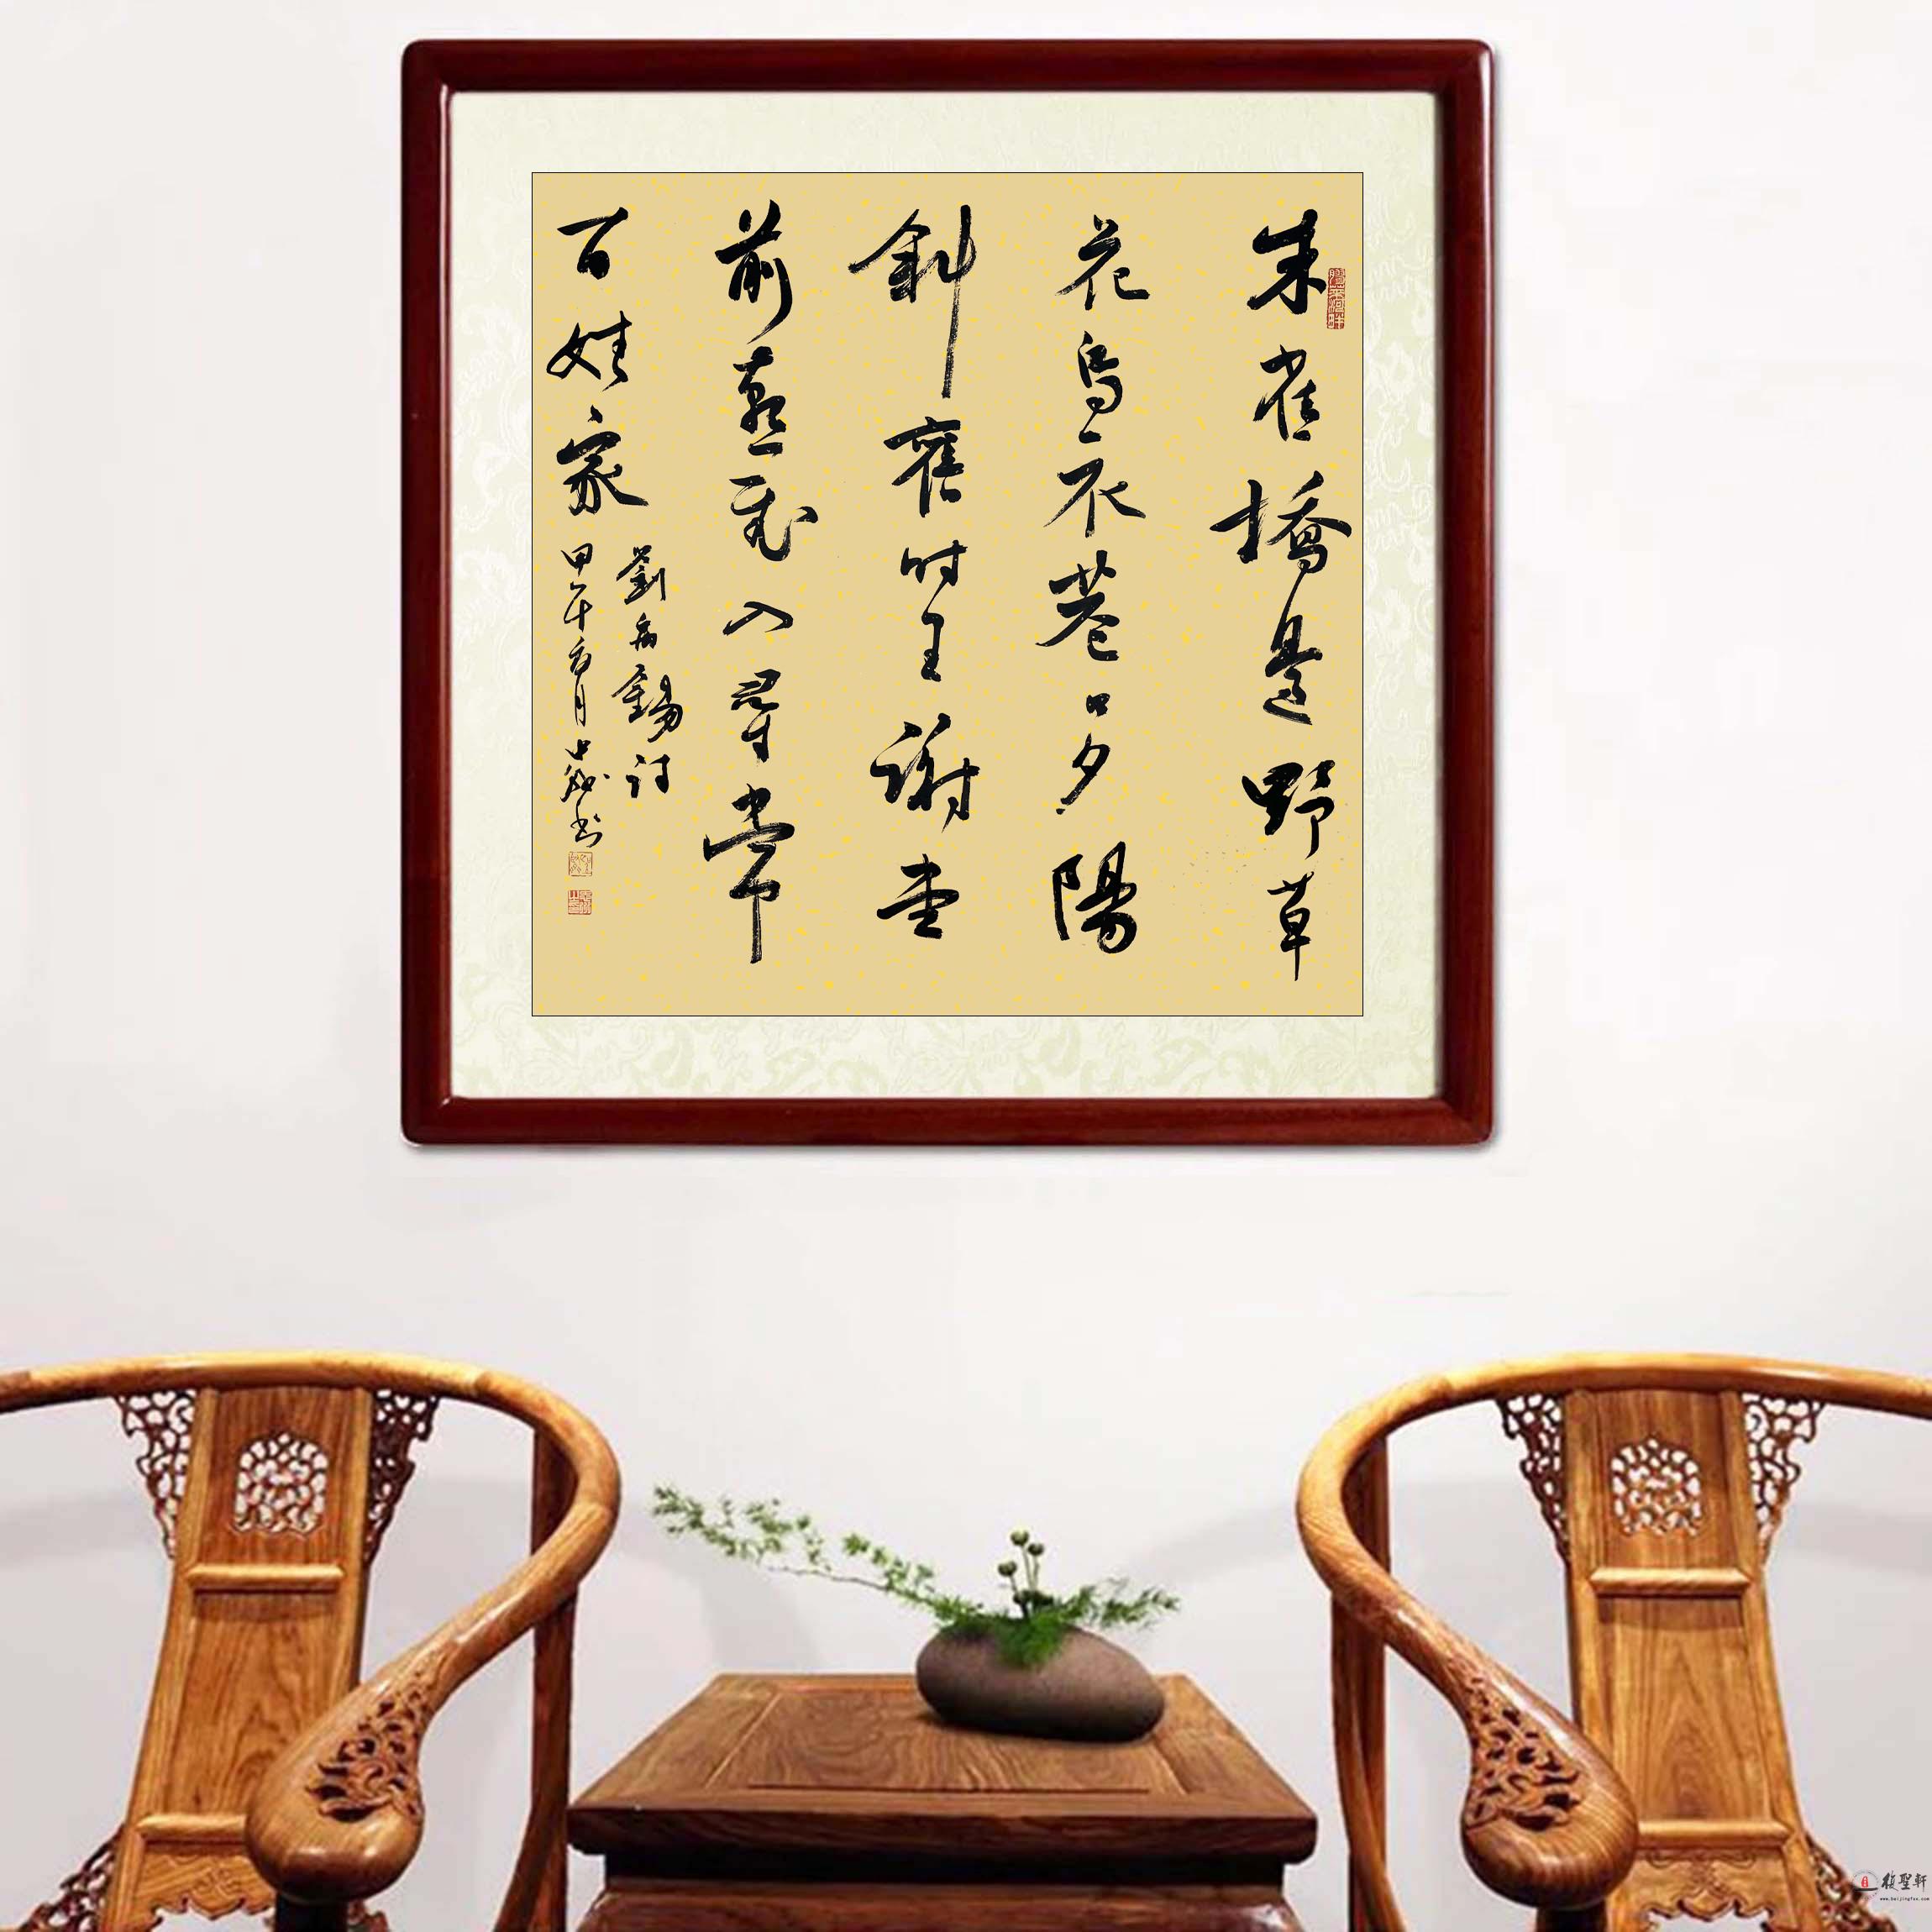 朱雀橋邊野草
花烏衣巷口夕陽
斜舊時王謝堂
前燕飛入尋常
百姓家
劉禹錫詩
甲午 月 書
復聖軒
www.beijingfsx.com